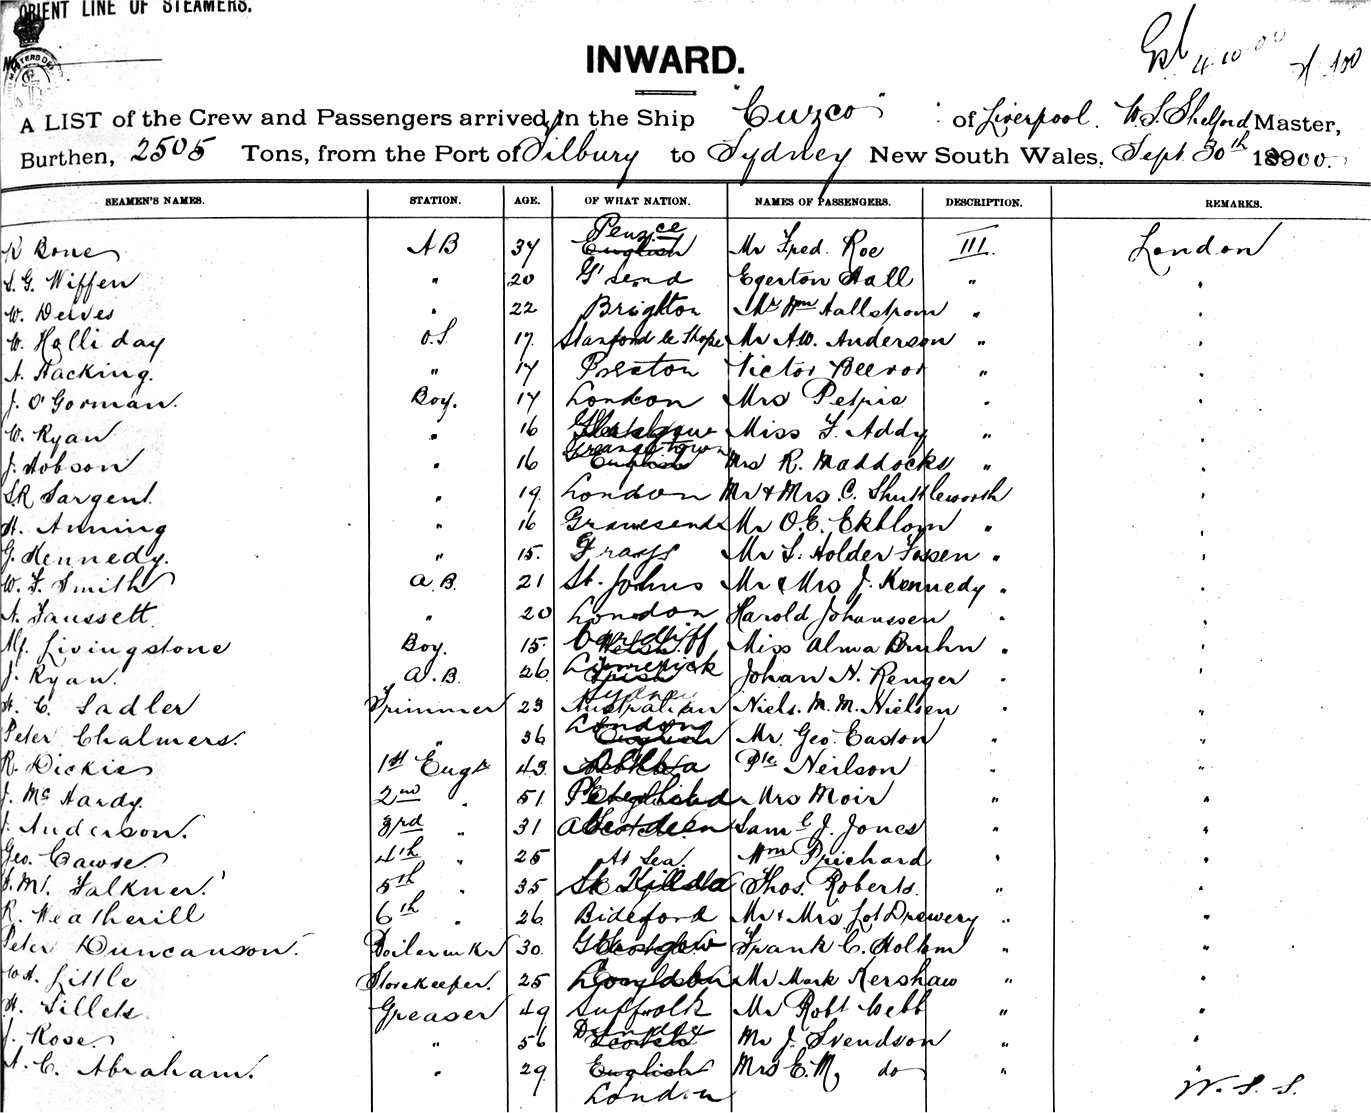 ORIENT LINE OF STEAMERS.
No
INWARD.
4.10.00
A LIST of the Crew and Passengers arrived in the Ship "Cuzco" of Liverpool. W. S. Shelford, Master,
Burthen, 2505 Tons, from the Port of Tilbury to Sydney New South Wales, Sept. 30th 1900.
SEAMEN'S NAMES. STATION. AGE. OF WHAT NATION. NAMES OF PASSENGERS. DESCRIPTION. REMARKS.
R Bone AB 37 Penzce English Mr Fred. Roe III. London
S. G. Wiffen " 20 G'send Egerton Hall " "
W. Deives " 22 Brighton Mr Wm Hallstrom " "
W. Holliday O.S. 17 Stanford le Hope Mr A.W. Anderson " "
A. Hacking. " 17 Preston Victor Beevor " "
J. O'Gorman. Boy. 17 London Mrs Petrie " "
W. Ryan " 16 Glasgow Miss F. Addy " "
J. Hobson " 16 Grangetown English Mrs R. Maddocks " "
S R Sargent. " 19 London Mr & Mrs C. Shuttleworth "
H. Anning " 16 Gravesend Mr O.E. Ekblom " "
G. Kennedy. " 15. Grays Mr S. Holder Fossen " "
W. F. Smith A.B. 21 St. Johns Mr & Mrs J. Kennedy " "
A. Faussett " 20 London Harold Johanssen " "
Alf. Livingstone Boy. 15. Cardiff Welsh Miss Alma Bruhn " "
J. Ryan. A.B. 26 Limerick Irish Johan N. Renger " "
H. C. Sadler Trimmer 23 Sydney Australian Niels. M. M. Nielsen " "
Peter Chalmers. " 36 London English Mr. Geo. Easton " "
R. Dickie 1st Engr 43 Pte Neilson " "
J. McHardy 2nd " 51 Mrs Moir " "
J. Anderson. 3rd " 31 Aberdeen Saml J. Jones " "
Geo. Cawse 4th " 25 At Sea. Wm Prichard " "
S. M. Falkner. 5th " 35 St Kilda Thos. Roberts. " "
R. Weatherill 6th " 26 Bideford Mr & Mrs Lot Drewery " "
Peter Duncanson. Boilermkr 30. Glasgow Frank C. Hollom " "
W H. Little Storekeeper. 25 London Mr Mark Kershaw " "
H. Tillets Greaser 49 Suffolk Mr Robt Webb " "
J. Rose. " 56 Dundee Scotch Mr J. Svendson " "
A. C. Abraham. " 29 English Mrs E. M. do " "
London W. S. S.